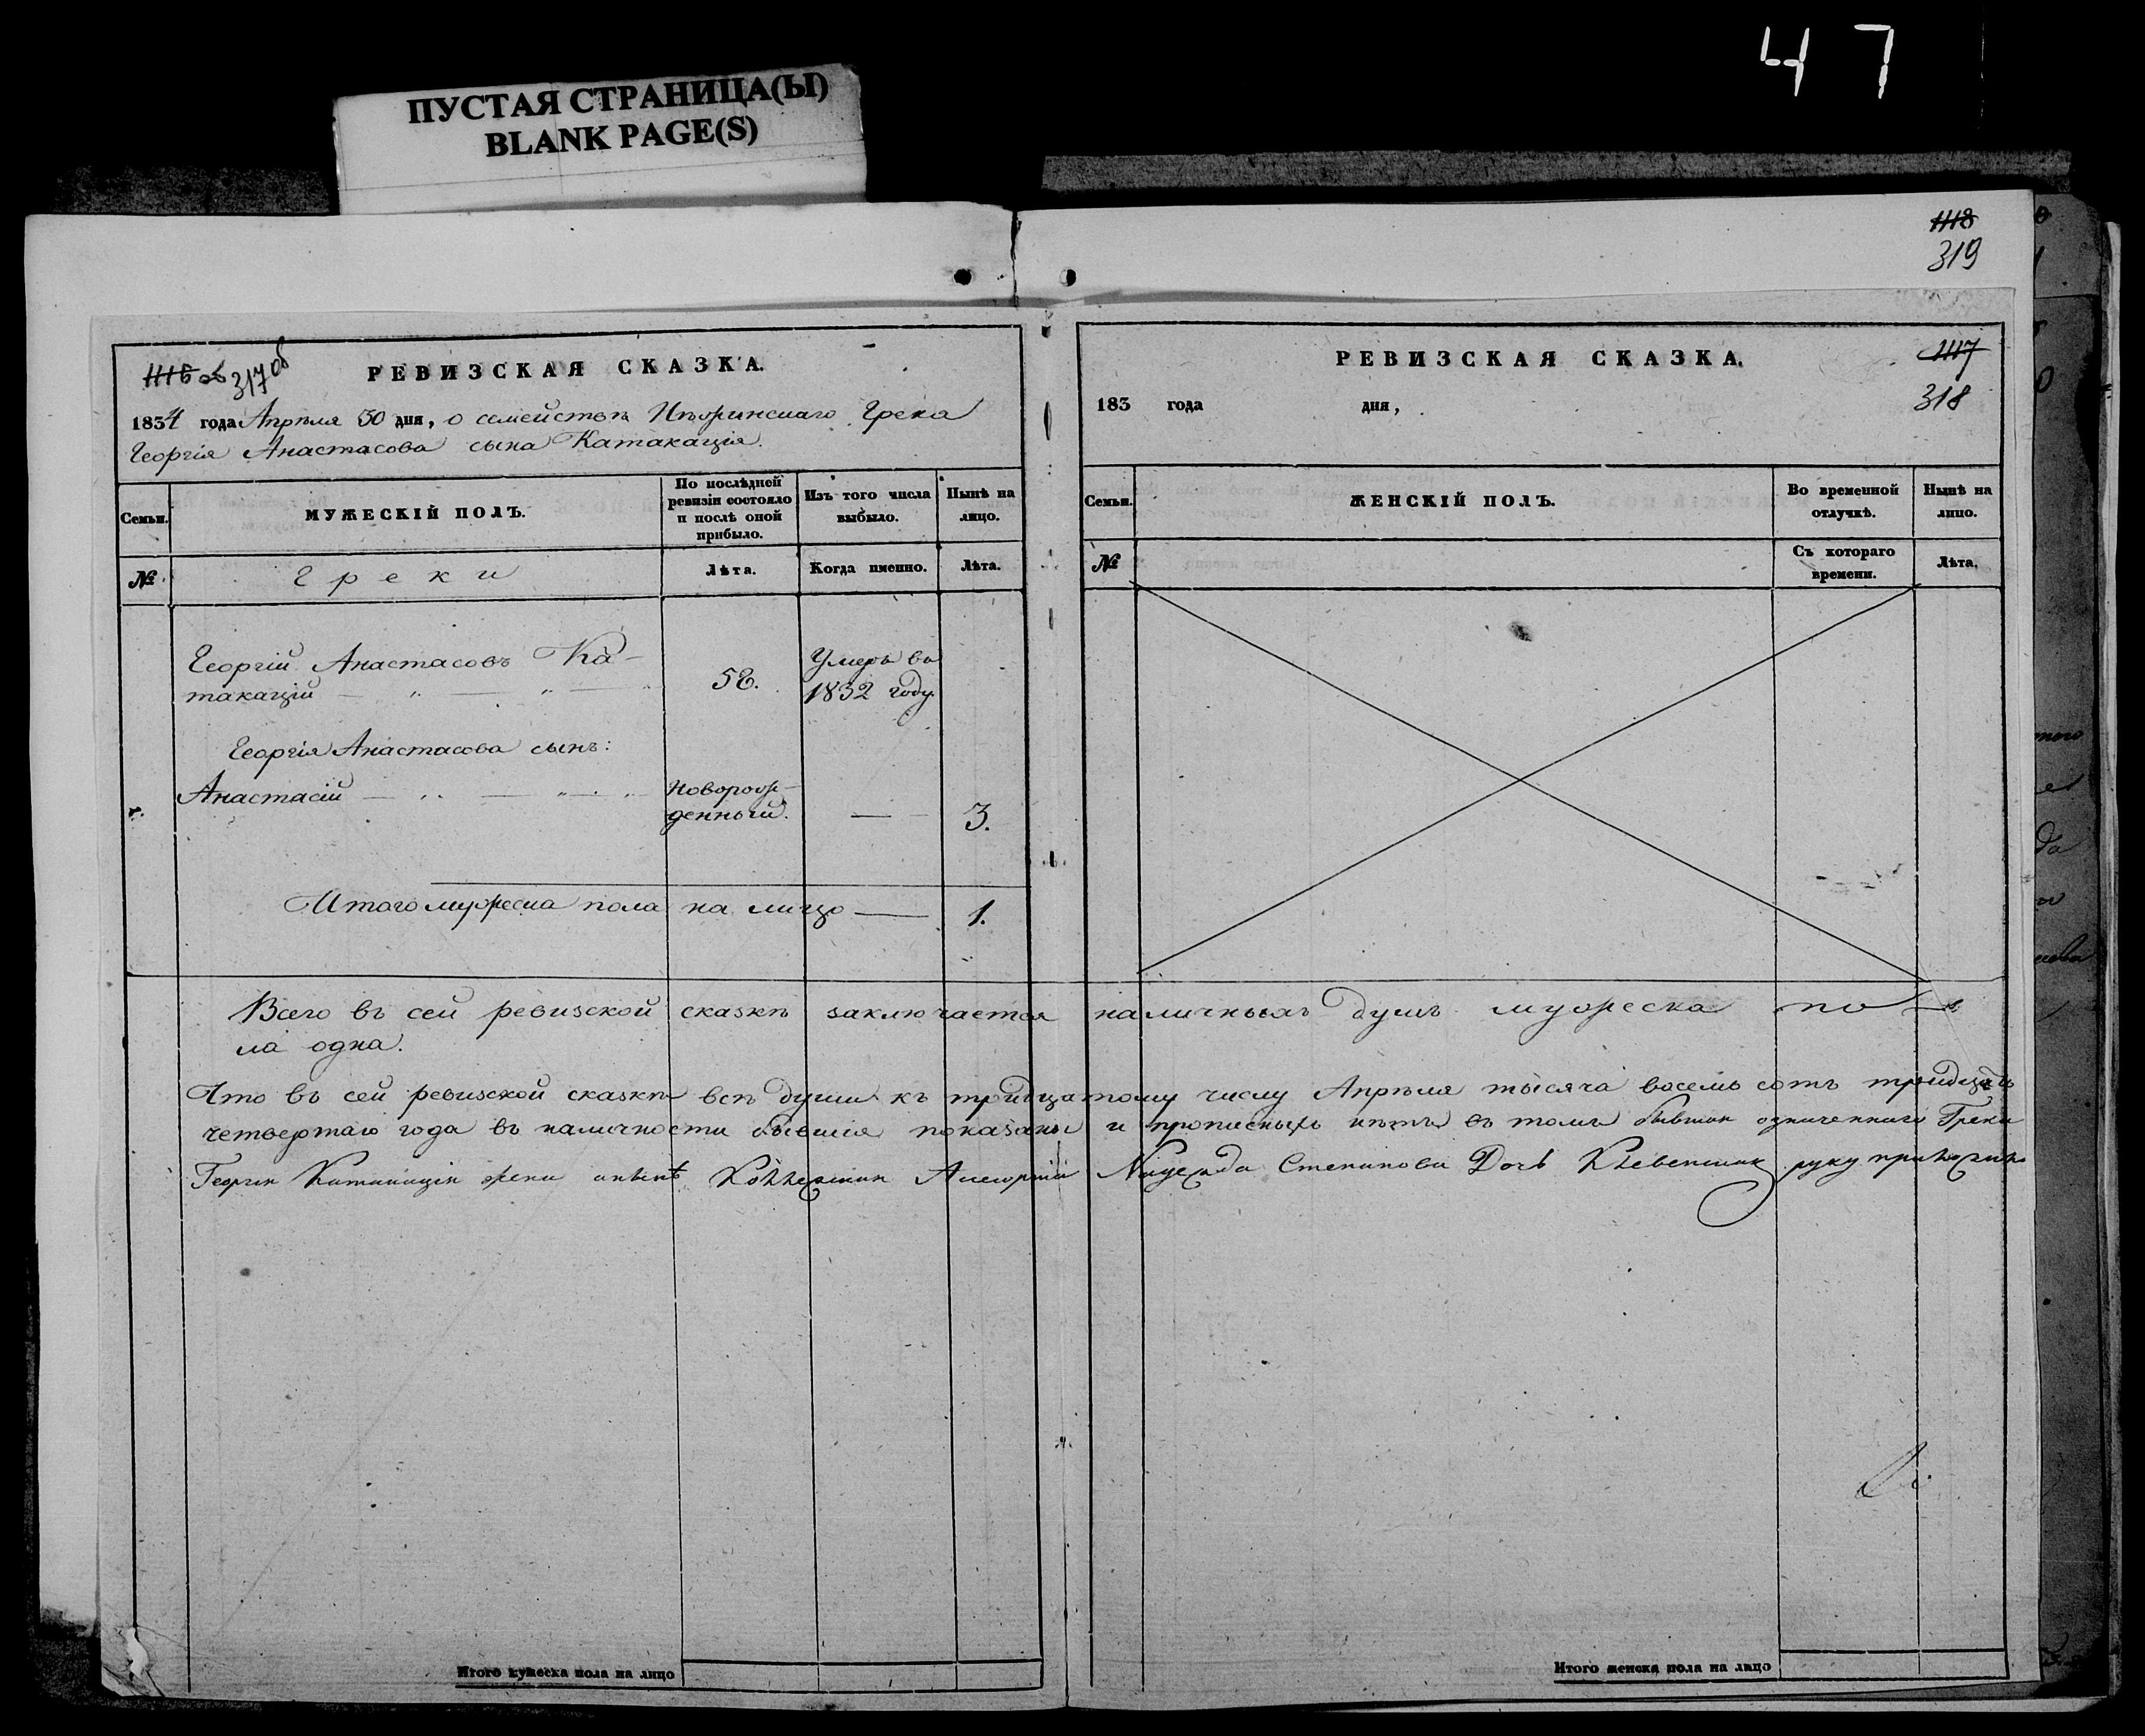 47
ПУСТАЯ СТРАНИЦА(Ы)
BLANK PAGE(S)
1118
319
1116 об 317 об
РЕВИЗСКАЯ СКАЗКА.
1834 года Апрѣля 30 дня, о семействѣ Грека
Георгія Анастасова сына Катакація.
Семьи.
МУЖЕСКІЙ ПОЛЪ.
По послѣдней ревизіи состояло и послѣ оной прибыло.
Изъ того числа выбыло.
Нынѣ на лицо.
№
Греки
Лѣта.
Когда именно.
Лѣта.
Георгій Анастасовъ Ка-
такацій
Умеръ въ
1832 году.
Георгія Анастасова сынъ:
Анастасій
новорож-
денный.
3.
Итого мужеска пола на лицо — 1.
РЕВИЗСКАЯ СКАЗКА.
1117
318
183 года дня,
Семьи.
ЖЕНСКІЙ ПОЛЪ.
Во временной отлучкѣ.
Нынѣ на лицо.
№
Съ котораго времени.
Лѣта.
Всего въ сей ревизской сказкѣ заключается наличныхъ душъ мужеска по-
ла одна.
Что въ сей ревизской сказкѣ всѣ души къ тридцатому числу Апрѣля тысяча восемь сотъ тридцать
четвертаго года въ наличности бывшія показаны и прописныхъ нѣтъ въ томъ бывшая означеннаго Грека
Георгія Катакація жена Надежда Степанова Дочь руку приложила
Итого мужеска пола на лицо
Итого женска пола на лицо